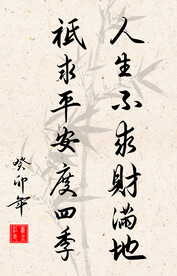 人生不求財滿地
祗求平安度四季
癸卯年